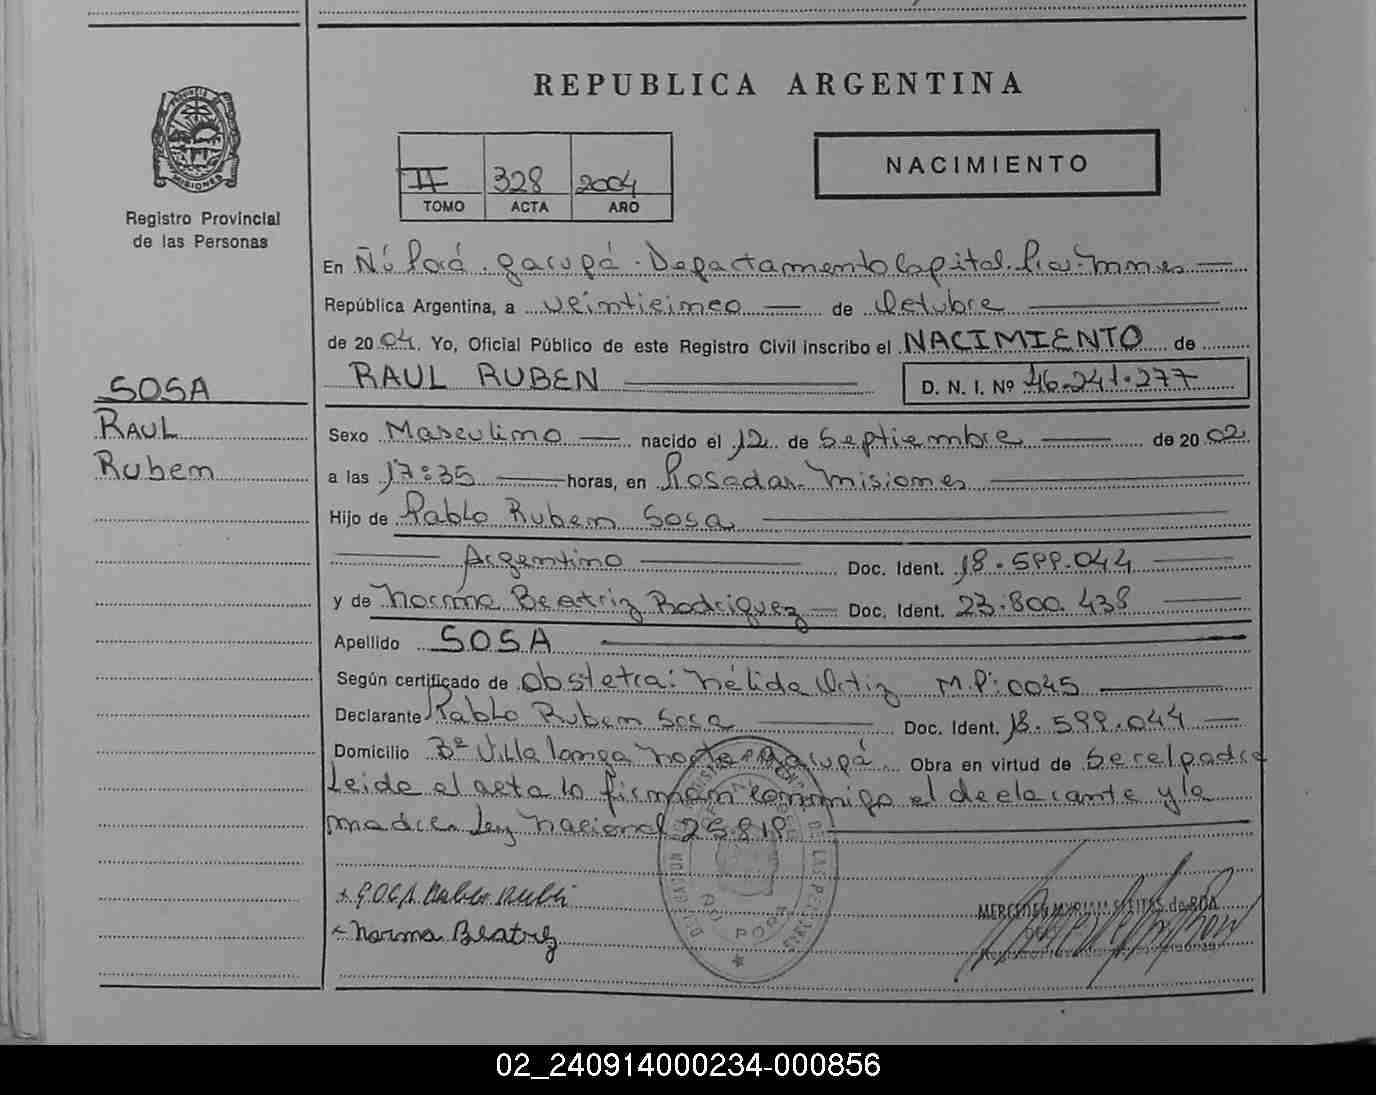 REPUBLICA ARGENTINA
PROVINCIA DE
MISIONES
Registro Provincial
de las Personas
NACIMIENTO
II 328 2004
TOMO ACTA AÑO
En Ñú Porá. Garupá. Departamento Capital. Pcia. Mnes
República Argentina, a veinticinco de Octubre
de 2004. Yo, Oficial Público de este Registro Civil inscribo el NACIMIENTO de
RAUL RUBEN D. N. I. Nº 46.241.277
SOSA
RAUL
Ruben
Sexo Masculino nacido el 12 de Septiembre de 2002
a las 17:35 horas, en Posadas. Misiones
Hijo de Pablo Ruben Sosa
Argentino Doc. Ident. 18.599.044
y de Norma Beatriz Rodriguez Doc. Ident. 23.800.438
Apellido SOSA
Según certificado de Obstetra: Nélida Ortiz M.P: 0045
Declarante Pablo Ruben Sosa Doc. Ident. 18.599.044
Domicilio Bº Villa longa Norte. Garupá Obra en virtud de Ser el padre
Leida el acta la firman conmigo el declarante y la
madre. Ley Nacional 25.819
Norma Beatriz
MERCEDES MYRIAM de ROA
02_240914000234-000856